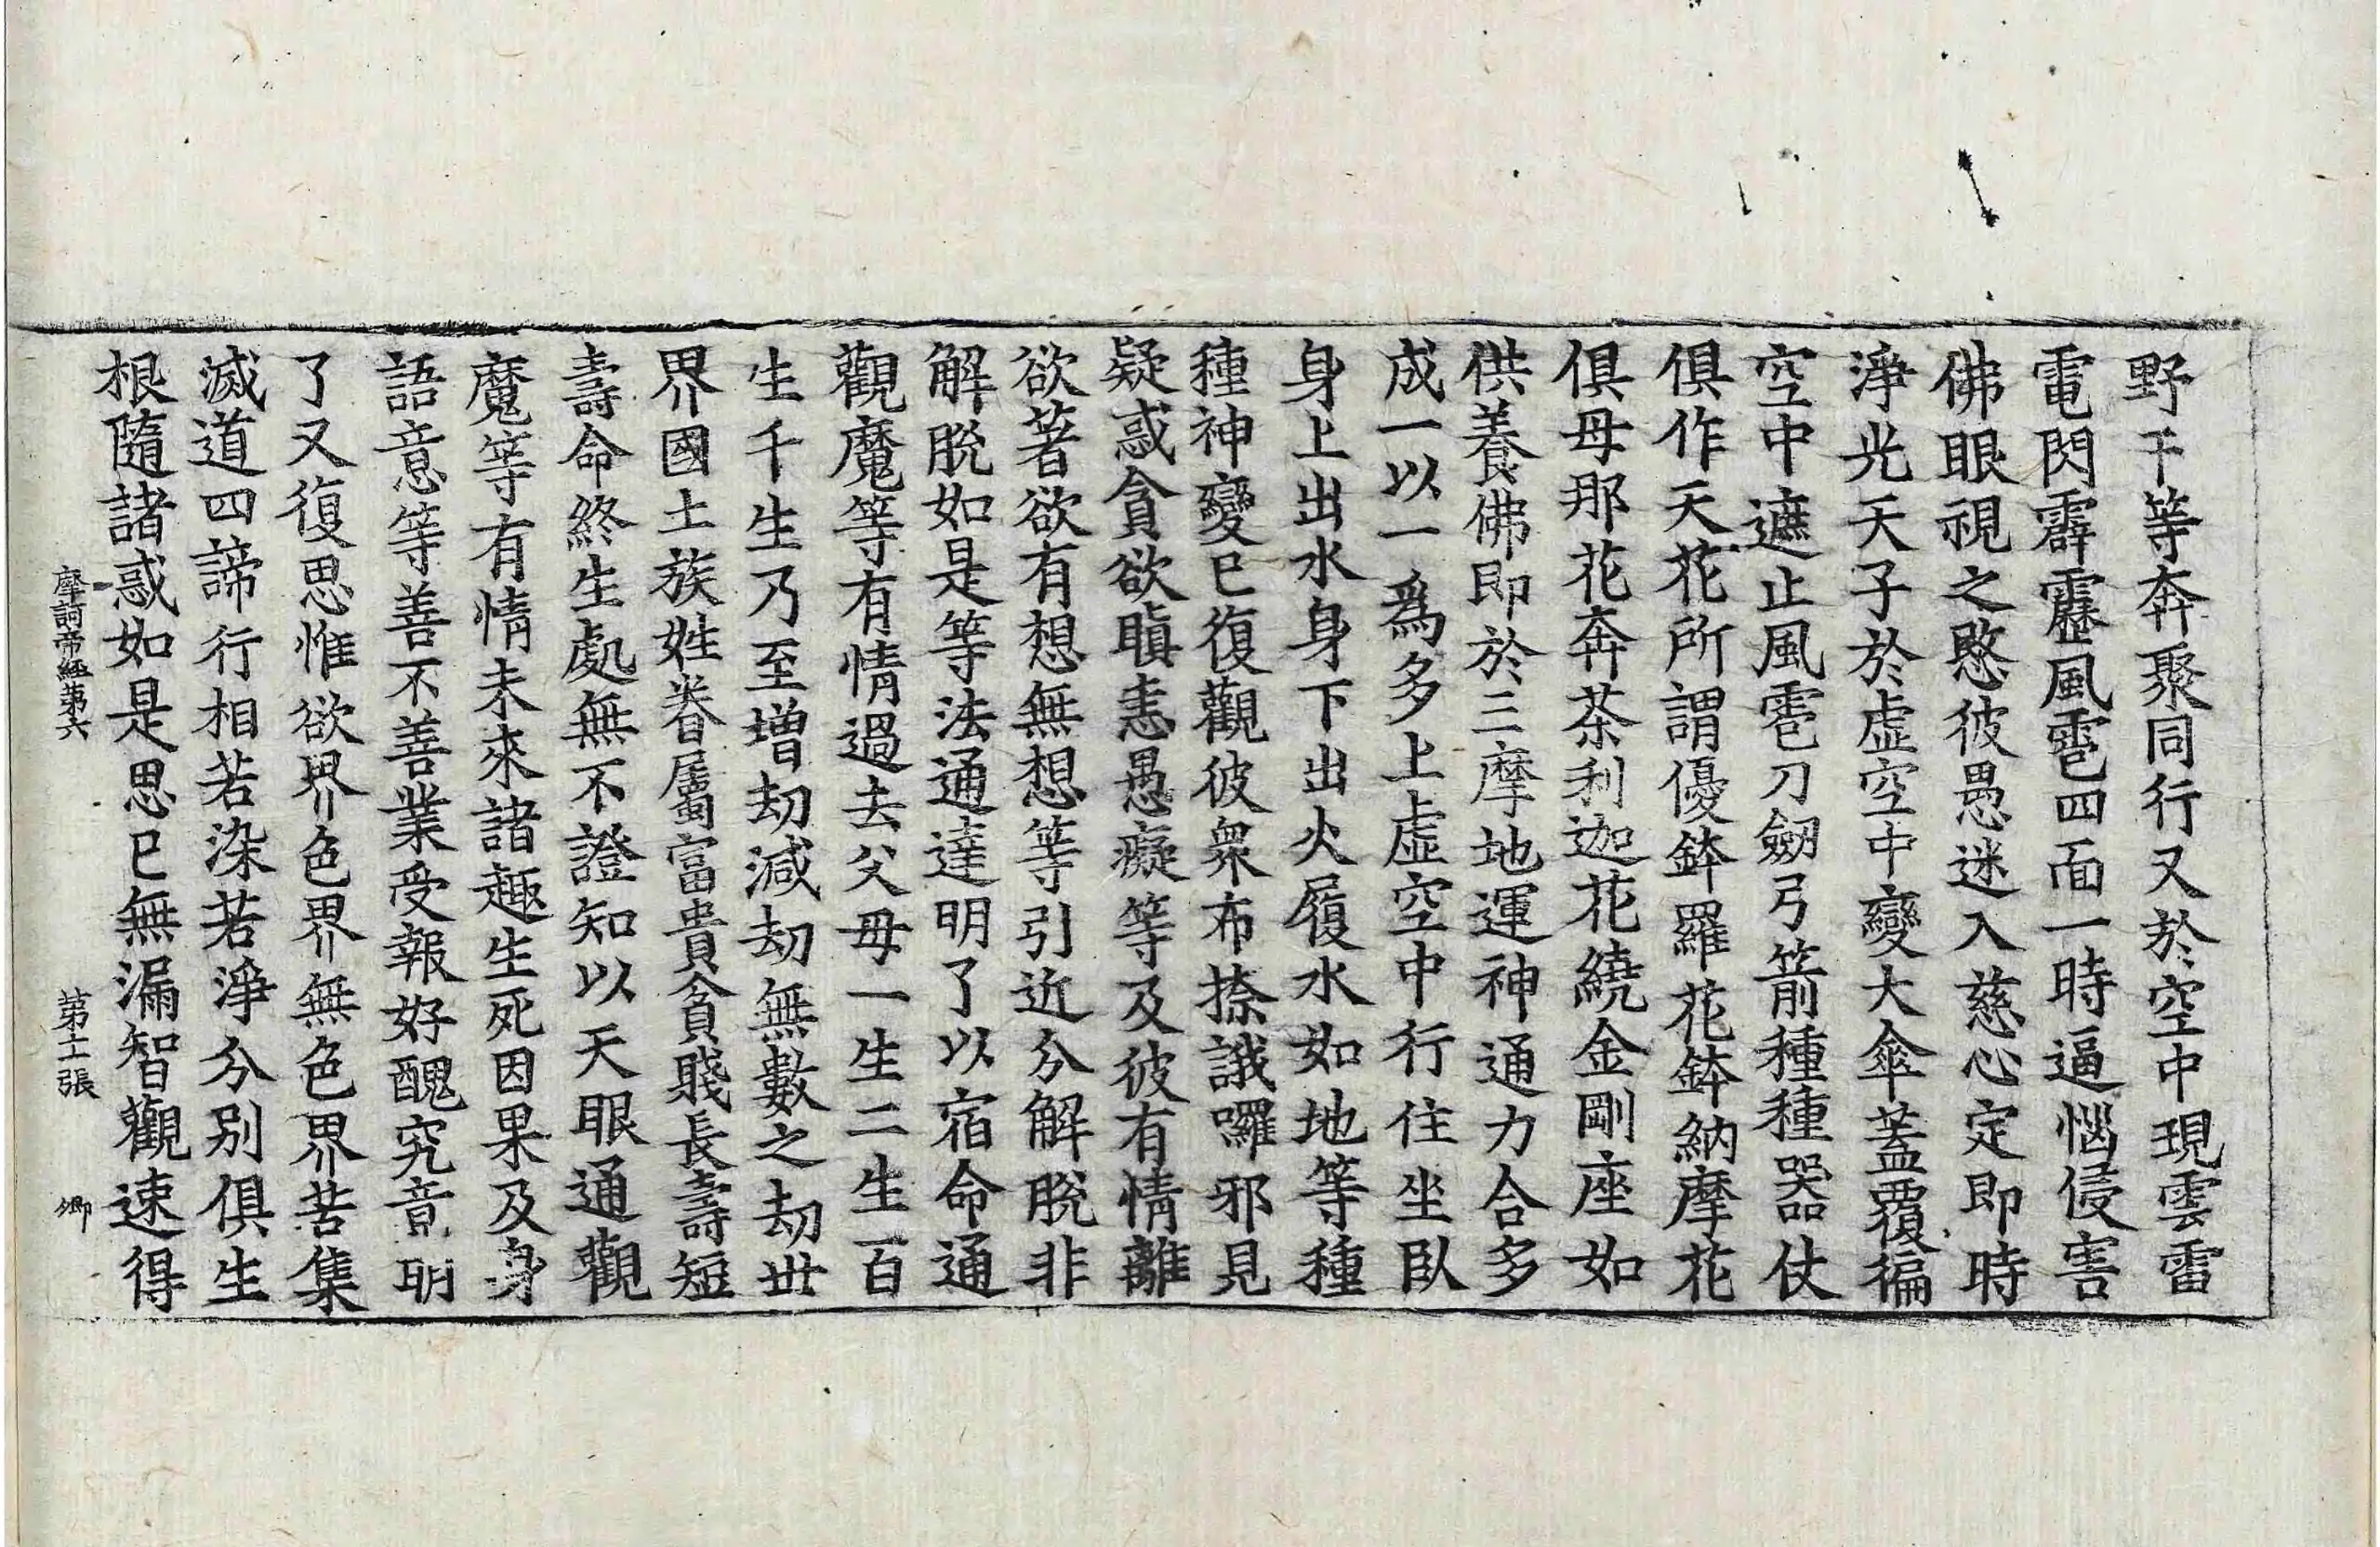 野干等奔聚同行又於空中現雲雷
電閃霹靂風雹四面一時逼惱侵害
佛眼視之愍彼愚迷入慈心定即時
淨光天子於虛空中變大傘蓋覆徧
空中遮止風雹刀劔弓箭種種器仗
俱作天花所謂優鉢羅花鉢納摩花
俱母那花奔茶利迦花繞金剛座如
供養佛即於三摩地運神通力合多
成一以一爲多上虛空中行住坐臥
身上出水身下出火履水如地等種
種神變已復觀彼衆布捺誐囉邪見
疑惑貪欲瞋恚愚癡等及彼有情離
欲著欲有想無想等引近分解脫非
解脫如是等法通達明了以宿命通
觀魔等有情過去父母一生二生百
生千生乃至增劫減劫無數之劫世
界國土族姓眷屬富貴貧賤長壽短
壽命終生處無不證知以天眼通觀
魔等有情未來諸趣生死因果及身
語意等善不善業受報好醜究竟明
了又復思惟欲界色界無色界苦集
滅道四諦行相若染若淨分別俱生
根隨諸惑如是思已無漏智觀速得
摩訶帝經第六 第十二張 卿